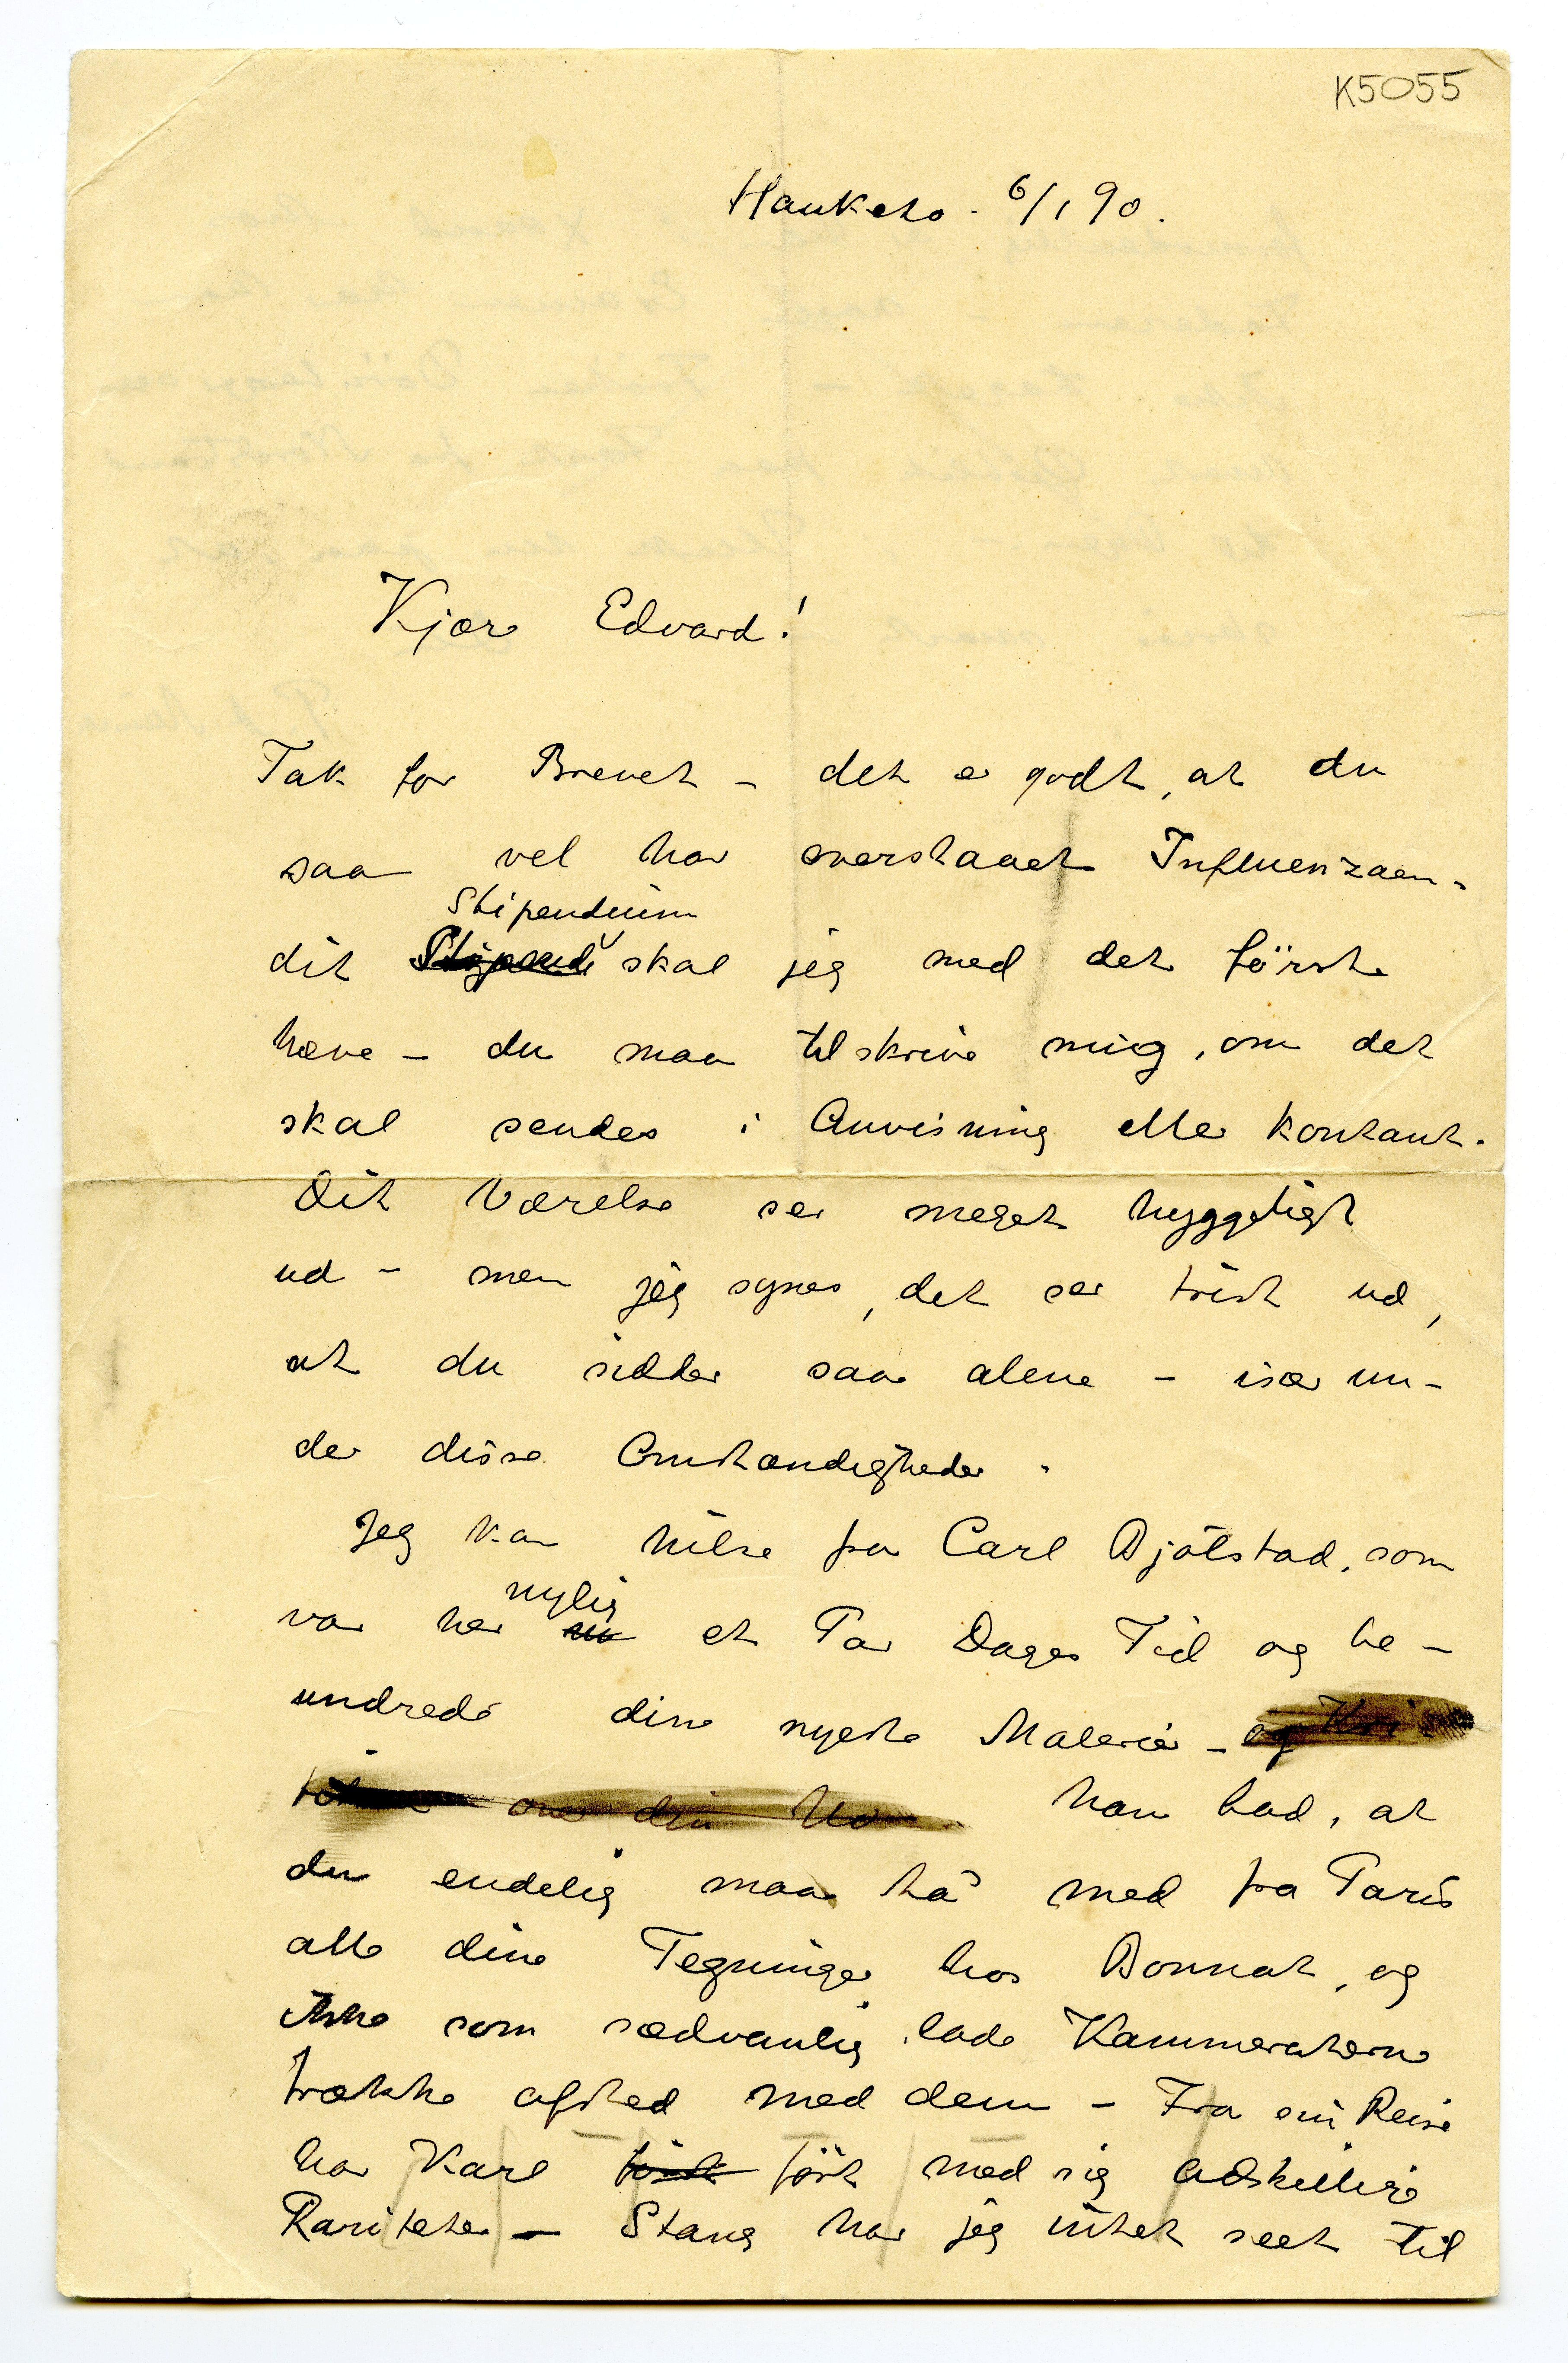 K5055
Hauketo. 6/1 90.
Kjære Edvard!
Tak for Brevet – det er godt, at du
saa vel har overstaaet Influenzaen.
Stipendium
dit Stipendi skal jeg med det første
hæve – du maa tilskrive mig, om det
skal sendes i Anvisning eller kontant.
Dit Værelse ser meget hyggeligt
ud – men jeg synes, det ser trist ud,
at du sidder saa alene – især un-
der disse Omstændigheder.
Jeg kan hilse fra Carl Bjølstad, som
nylig
var her et Par Dages Tid og be-
undrede dine nyeste Malerier – og
over din han bad, at
du endelig maa ta' med fra Paris
alle dine Tegninger hos Bonnat, og
ikke som sædvanlig lade Kammeraterne
trække afsted med dem – Fra sin Reise
har Karl ført med sig adskillige
Rariteter – Stang har jeg intet seet til